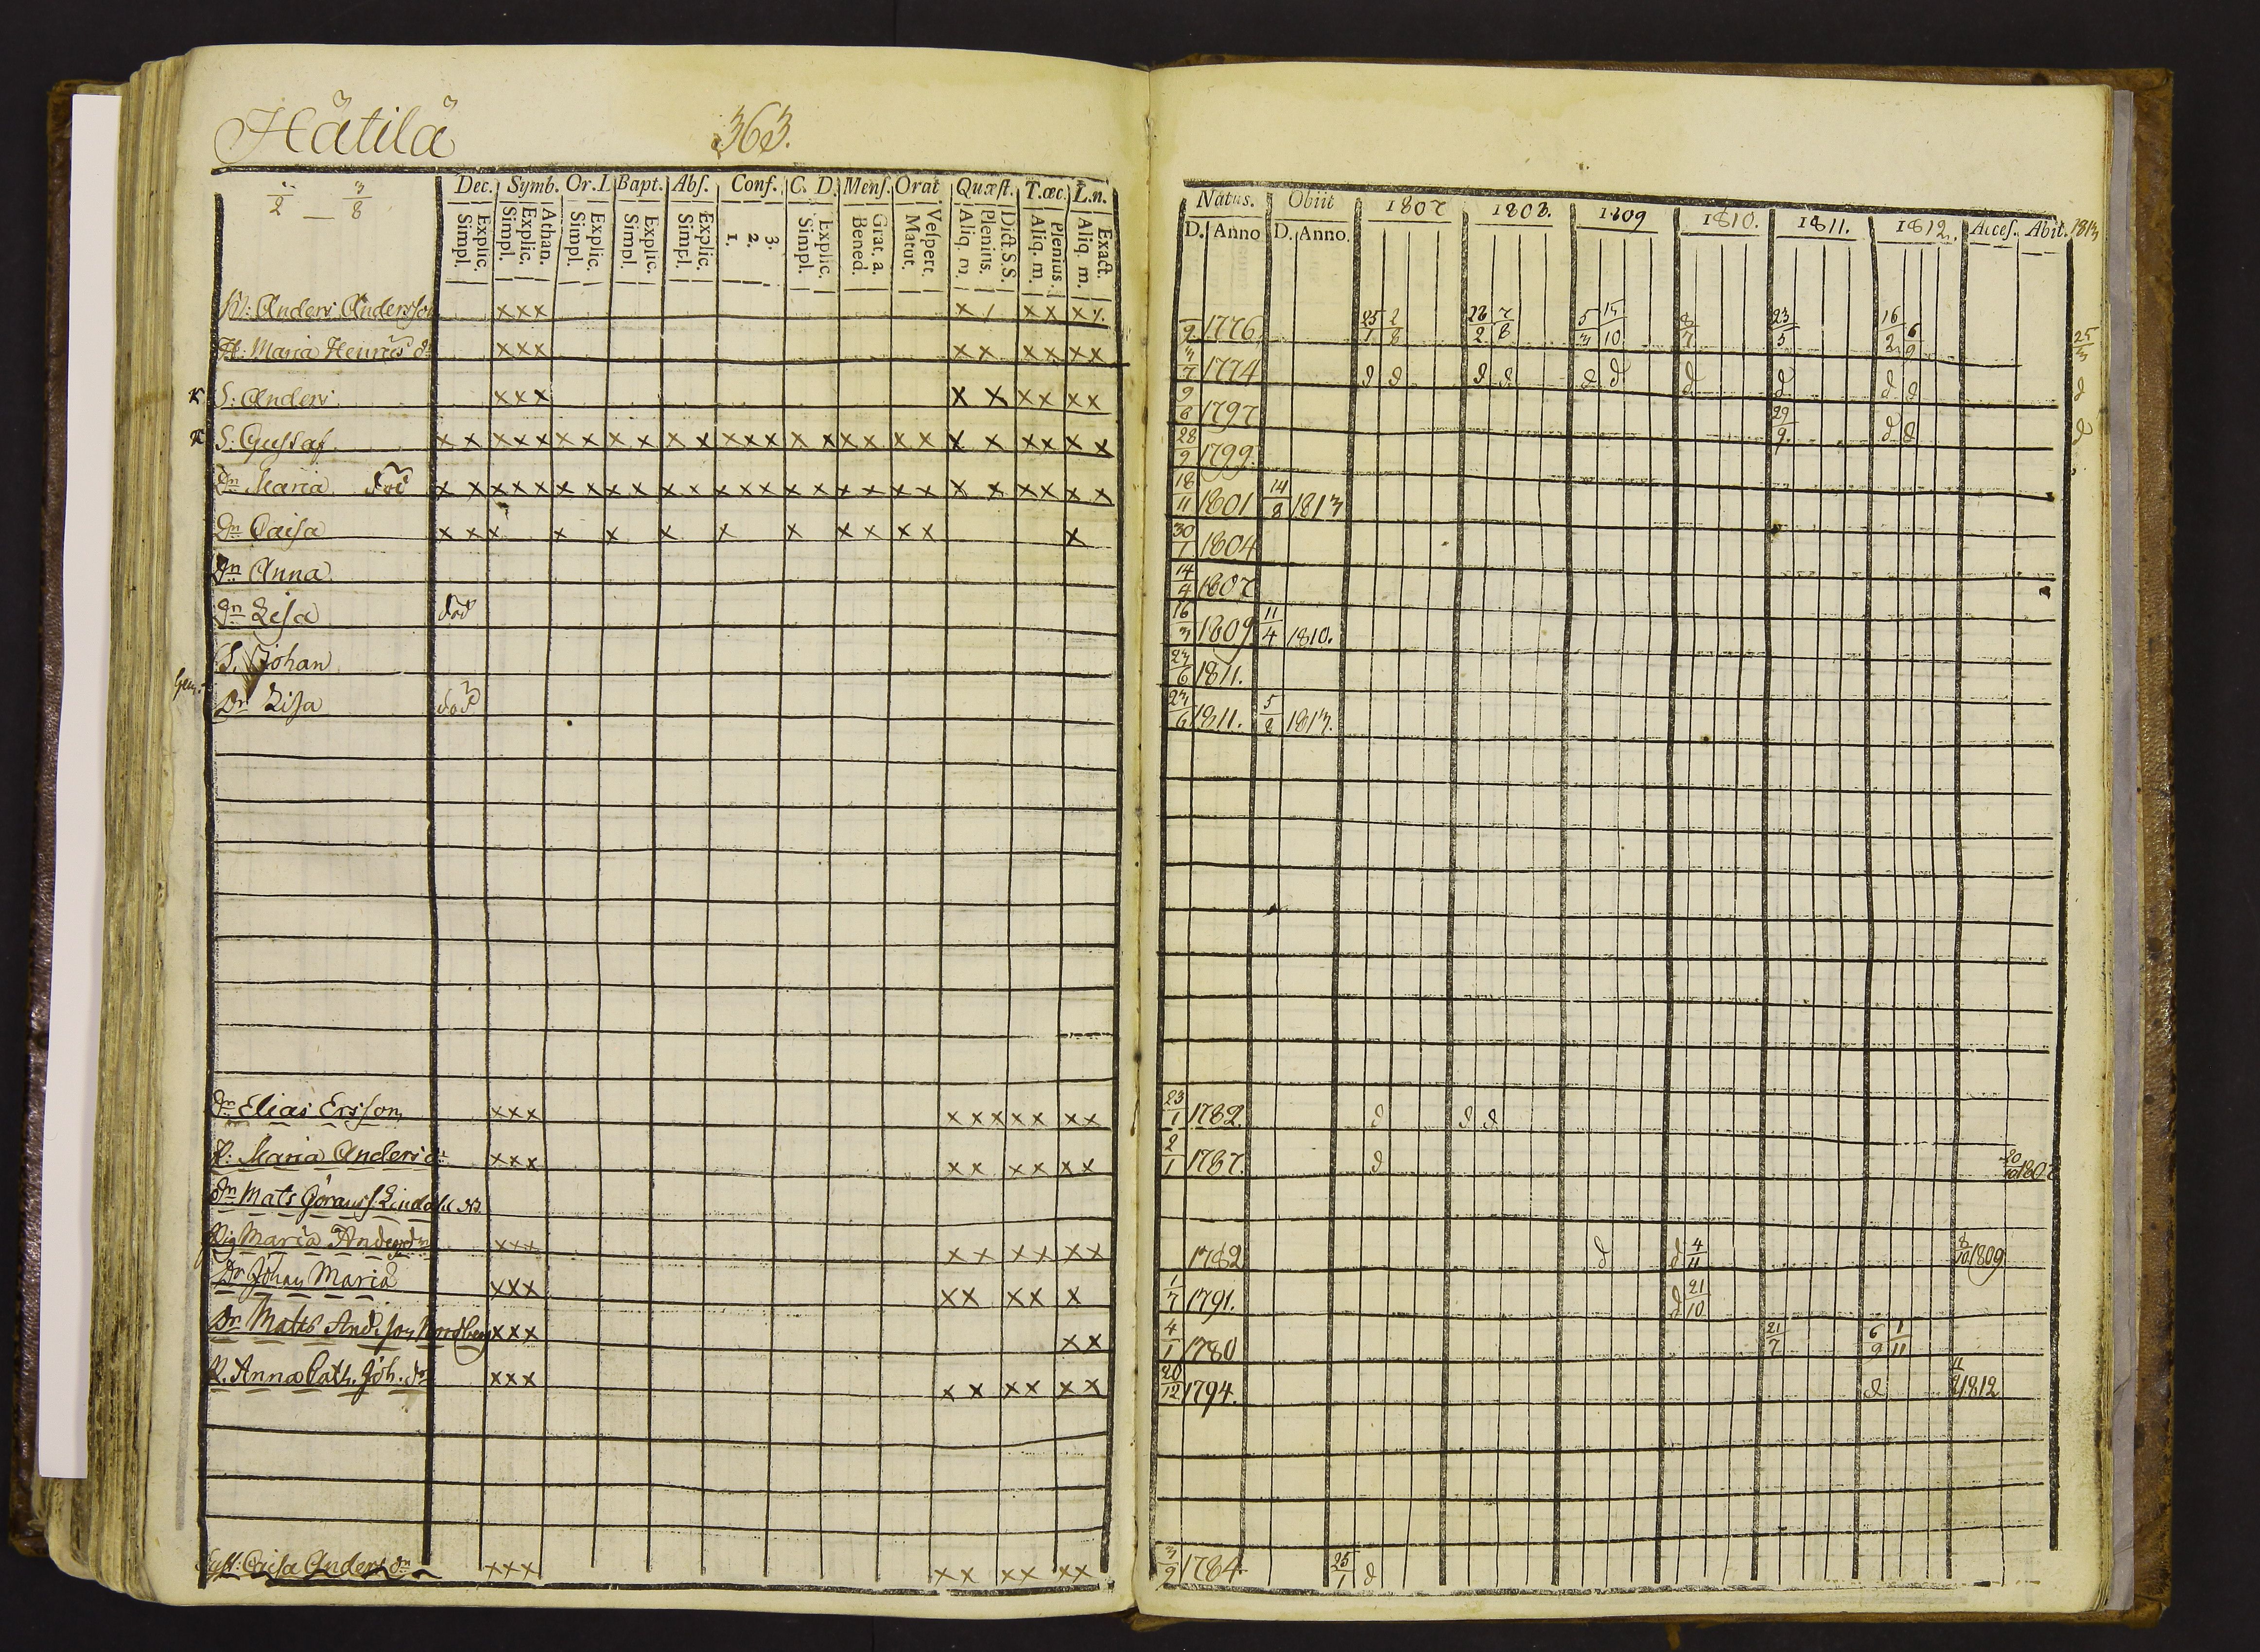 Hätilä 363.
Dec. Symb. Or. L. Bapt. Abſ. Conf. C. D. Menſ. Orat Quæſt. T.œc. L.n.
2 — 3/8
Explic. Simpl. Athan. Explic. Simpl. Explic. Simpl. Explic. Simpl. Explic. Simpl. 3. 2. 1. Explic. Simpl. Grat. a. Bened. Veſpert. Matut. Dict. S.S. Plenius. Aliq. m. Plenius. Aliq. m. Exact. Aliq. m.
Anders Andersson xxx x / xx x
H: Maria Henrics dr xxx xx xx xx
S: Anders xxx x x xx xx
S: Gustaf x x xxx xx xx x x xxx x x xx xx x x xx x x
Dr Maria död x x xxx xx xx xx xxx xx xx xx x x xx x x
Dr Caisa x x x x x x x x x x x x x
Dr Anna
Dr Lisa död
S. Johan
Dr Lisa död
Dn Elias Ersson xxx xxx xx xx
H: Maria Anders dr xxx xx xx xx
Dn Mats Göranss Lindahl
Pig Maria Anders dr xxx xx xx xx
Dr Johan Maria xxx xx xx x
Dn Matts And.son Nordberg xxx xx
P. Anna Cath. Joh. dr xxx xx xx xx
Syst: Caisa Anders dr xxx xx xx xx
Natus. Obiit 1807 1808. 1809 1810. 1811. 1812. Acceſ. Abit. 1813
D. Anno D. Anno.
1776 25/1 2/8 28/2 7/8 5/3 15/10 8/7 23/5 16/2 6/9 25/3
3/7 1774 d d d d d d d d d d d
9/8 1797 29/9 d d d
28/9 1799
18/11 1801 14/8 1813
30/1 1804
14/4 1807
16/3 1809 11/4 1810.
23/6 1811.
23/6 1811. 5/8 1813.
23/1 1782. d d d
2/1 1787. d 20/10 1807
1782 d d 4/11 8/10 1809
1/7 1791. d 21/10
4/1 1780 21/7 6/9 1/11
20/12 1794. d 1812
3/9 1784. 25/1 d